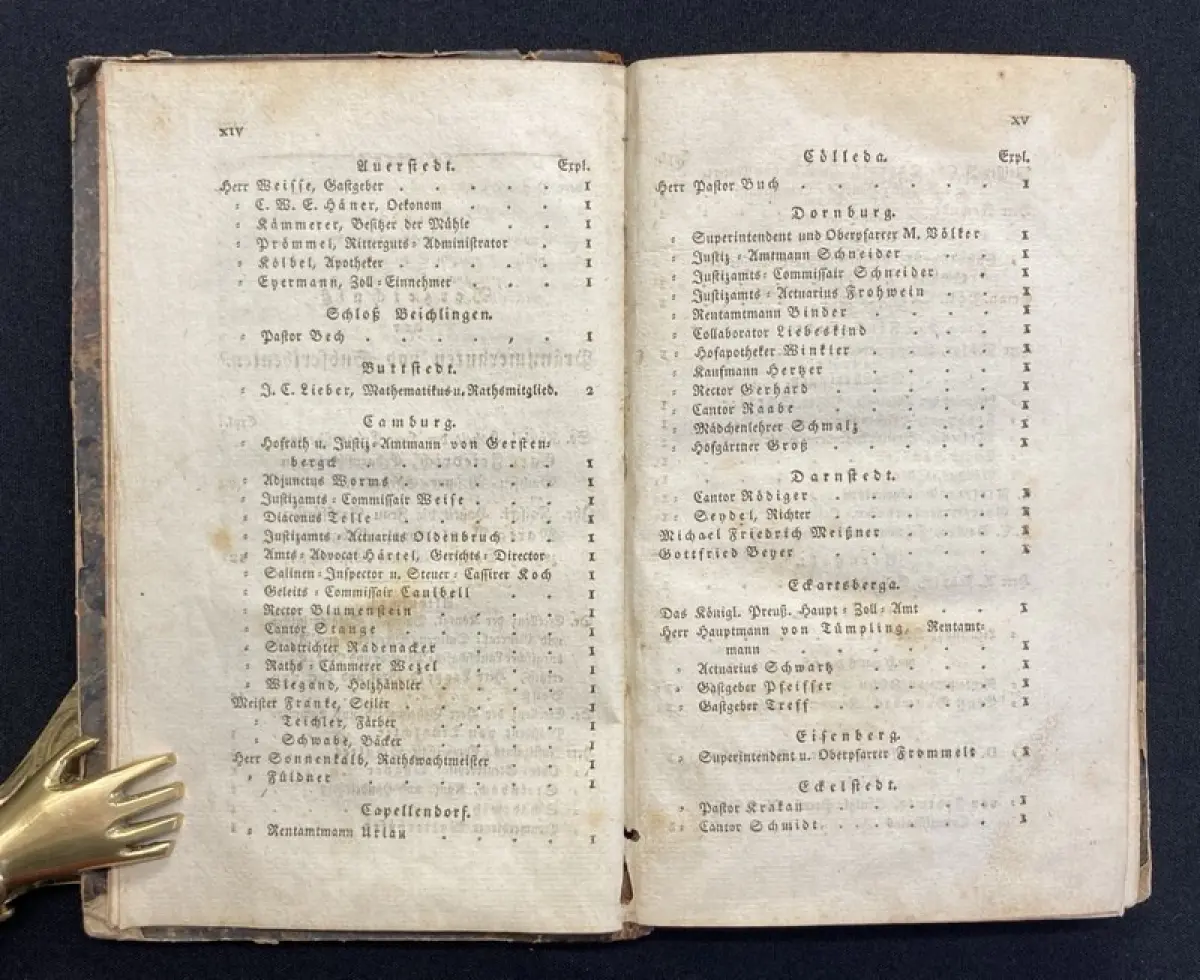 XIV
Auerstedt. Expl.
Herr Weisse, Gastgeber . . . . . 1
= C. W. E. Häner, Oekonom . . . 1
= Kämmerer, Besitzer der Mühle . . 1
= Prömmel, Ritterguts=Administrator . 1
= Kölbel, Apotheker . . . . . 1
= Eyermann, Zoll=Einnehmer . . . 1
Schloß Beichlingen.
= Pastor Bech . . . . , . 1
Buttstedt.
= J. C. Lieber, Mathematikus u. Rathsmitglied. 2
Camburg.
= Hofrath u. Justiz=Amtmann von Gersten=
bergck . . . . . . 1
= Adjunctus Worms . . . . . 1
= Justizamts=Commissair Weise . . . 1
= Diaconus Tölle . . . . . 1
= Justizamts=Actuarius Oldenbruch . . 1
= Amts=Advocat Härtel, Gerichts=Director 1
= Salinen=Inspector u. Steuer=Cassirer Koch 1
= Geleits=Commissair Caulbell . . 1
= Rector Blumenstein . . . . 1
= Cantor Stange . . . . . 1
= Stadtrichter Radenacker . . . . 1
= Raths=Cämmerer Wezel . . . . 1
= Wiegand, Holzhändler . . . . 1
Meister Franke, Seiler . . . . . 1
= Teichler, Färber . . . . 1
= Schwabe, Bäcker . . . . 1
Herr Sonnenkalb, Rathswachtmeister . . 1
= Füldner . . . . . . 1
Capellendorf.
= Rentamtmann Urlau . . . . 1
XV
Cölleda. Expl.
Herr Pastor Buch . . . . . . 1
Dornburg.
= Superintendent und Oberpfarrer M. Völker 1
= Justiz=Amtmann Schneider . . . 1
= Justizamts=Commissair Schneider . 1
= Justizamts=Actuarius Frohwein . . 1
= Rentamtmann Binder . . . . 1
= Collaborator Liebeskind . . . 1
= Hofapotheker Winkler . . . . 1
= Kaufmann Hertzer . . . . 1
= Rector Gerhard . . . . . 1
= Cantor Raabe . . . . . 1
= Mädchenlehrer Schmalz . . . . 1
= Hofgärtner Groß . . . . . 1
Darnstedt.
= Cantor Rödiger . . . . . 1
= Seydel, Richter . . . . . 1
Michael Friedrich Meißner . . . . 1
Gottfried Beyer . . . . . . 1
Eckartsberga.
Das Königl. Preuß. Haupt=Zoll=Amt . . . 1
Herr Hauptmann von Tümpling, Rentamt=
mann . . . . . . 1
= Actuarius Schwartz . . . . 1
= Gastgeber Pfeiffer . . . . 1
= Gastgeber Treff . . . . . 1
Eisenberg.
= Superintendent u. Oberpfarrer Frommelt . 1
Eckelstedt.
= Pastor Krakau . . . . . 1
= Cantor Schmidt . . . . . 1